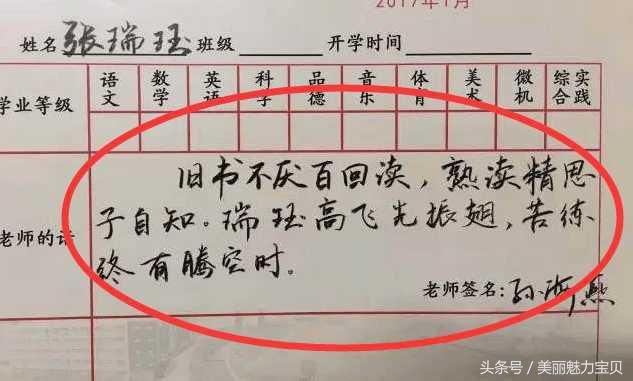 2017年1月
姓名 张瑞珏 班级 开学时间
学业等级 语文 数学 英语 科学 品德 音乐 体育 美术 微机 综合实践
老师的话
旧书不厌百回读，熟读精思
子自知。瑞珏高飞先振翅，苦练
终有腾空时。
老师签名：孙
头条号／美丽魅力宝贝